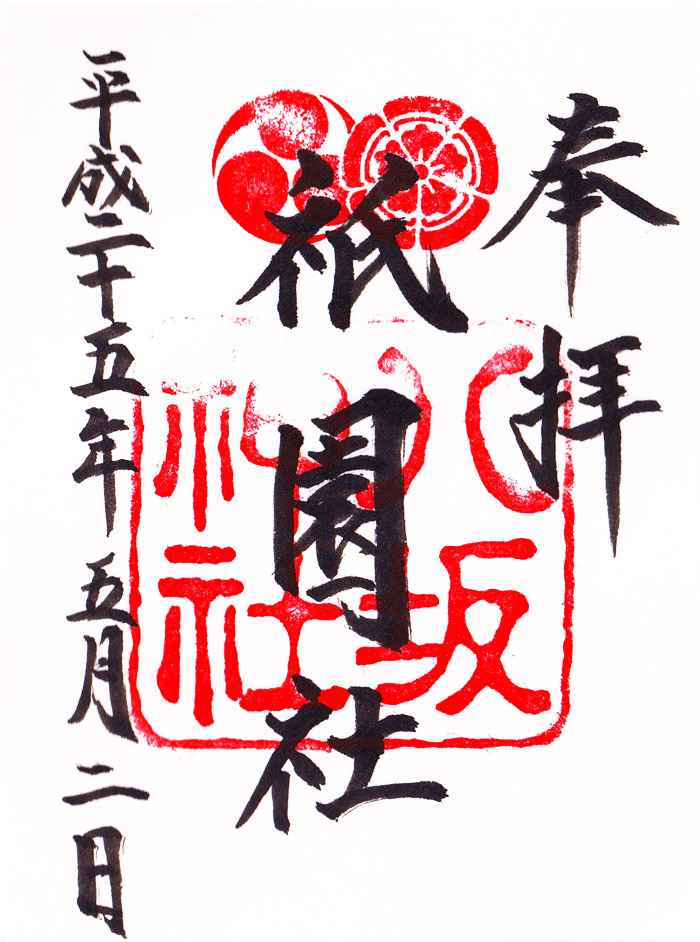 奉拝
八坂
神社
祇園社
平成二十五年五月二日